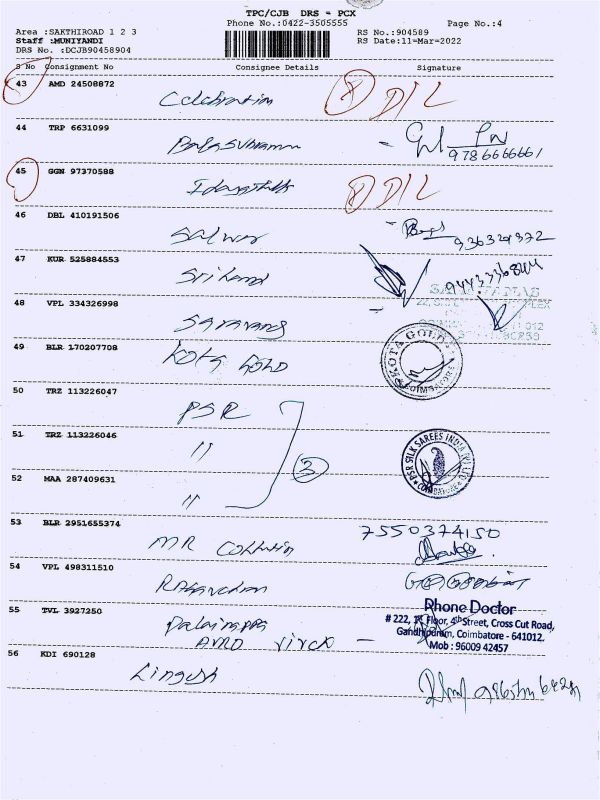 TPC/CJB DRS - PCX
Phone No.:0422-3505555 Page No.:4
Area :SAKTHIROAD 1 2 3 RS No.:904589
Staff :MUNIYANDI RS Date:11-Mar-2022
DRS No. :DCJB90458904
S No Consignment No Consignee Details Signature
43 AMD 24508872
Celebration D/L
44 TRP 6631099
Balasubramani
9786666661
45 GGN 97370588
D/L
46 DBL 410191506
Salwar
47 KUR 525884553
Srihand
48 VPL 334326998
Saravana
49 BLR 170207708
Kota Gold
KOTA GOLD
COIMBATORE
50 TRZ 113226047
PSR
51 TRZ 113226046
"
3
PSR SILK SAREES INDIA PVT LTD
COIMBATORE
52 MAA 287409631
"
53 BLR 2951655374
MR Collection
7550374150
54 VPL 498311510
55 TVL 3927250
Palaniappa
Rhone Doctor
# 222, 1st Floor, 4th Street, Cross Cut Road,
Gandhipuram, Coimbatore - 641012.
Mob : 96009 42457
56 KDI 690128
Lingesh